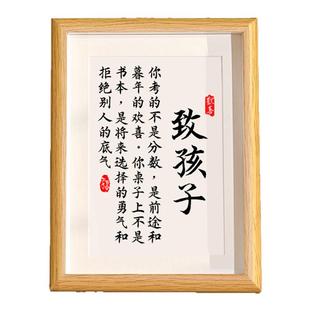 致孩子
你考的不是分数，是前途和
暮年的欢喜。你桌子上不是
书本，是将来选择的勇气和
拒绝别人的底气